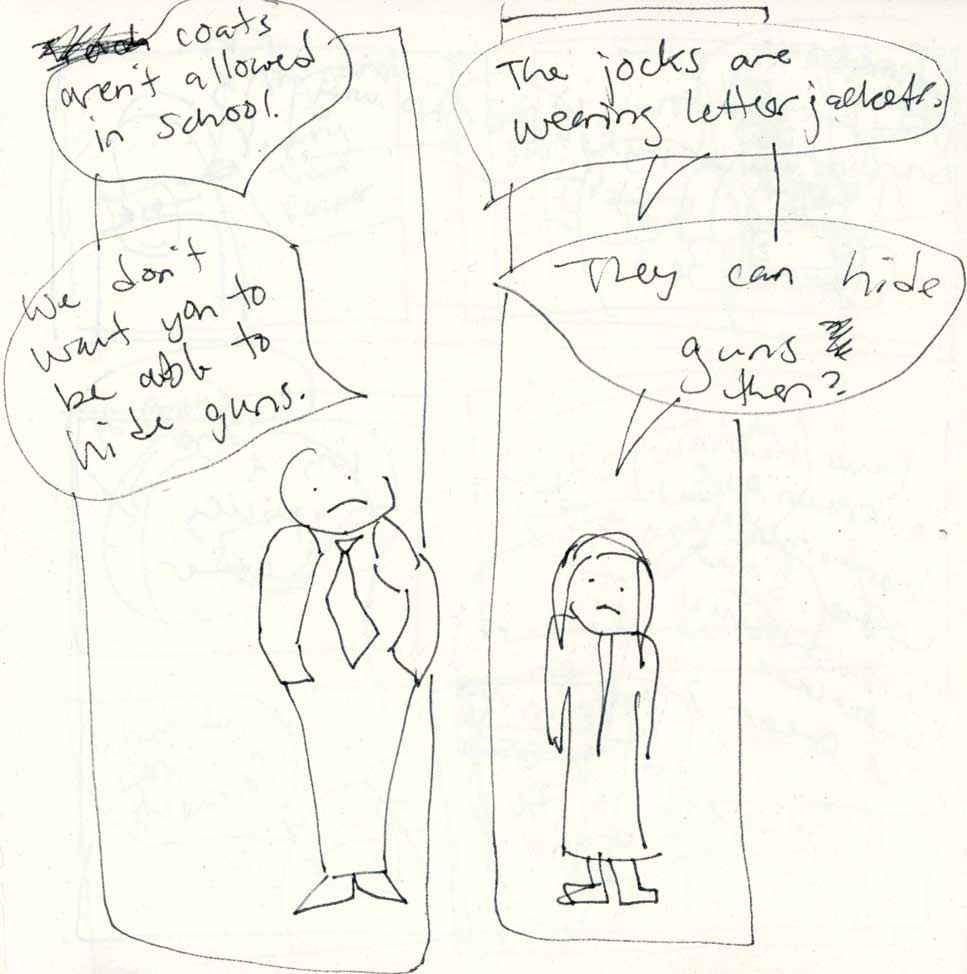 coats
aren't allowed
in school.
We don't
want you to
be able to
hide guns.
The jocks are
wearing letter jackets.
They can hide
guns
then?